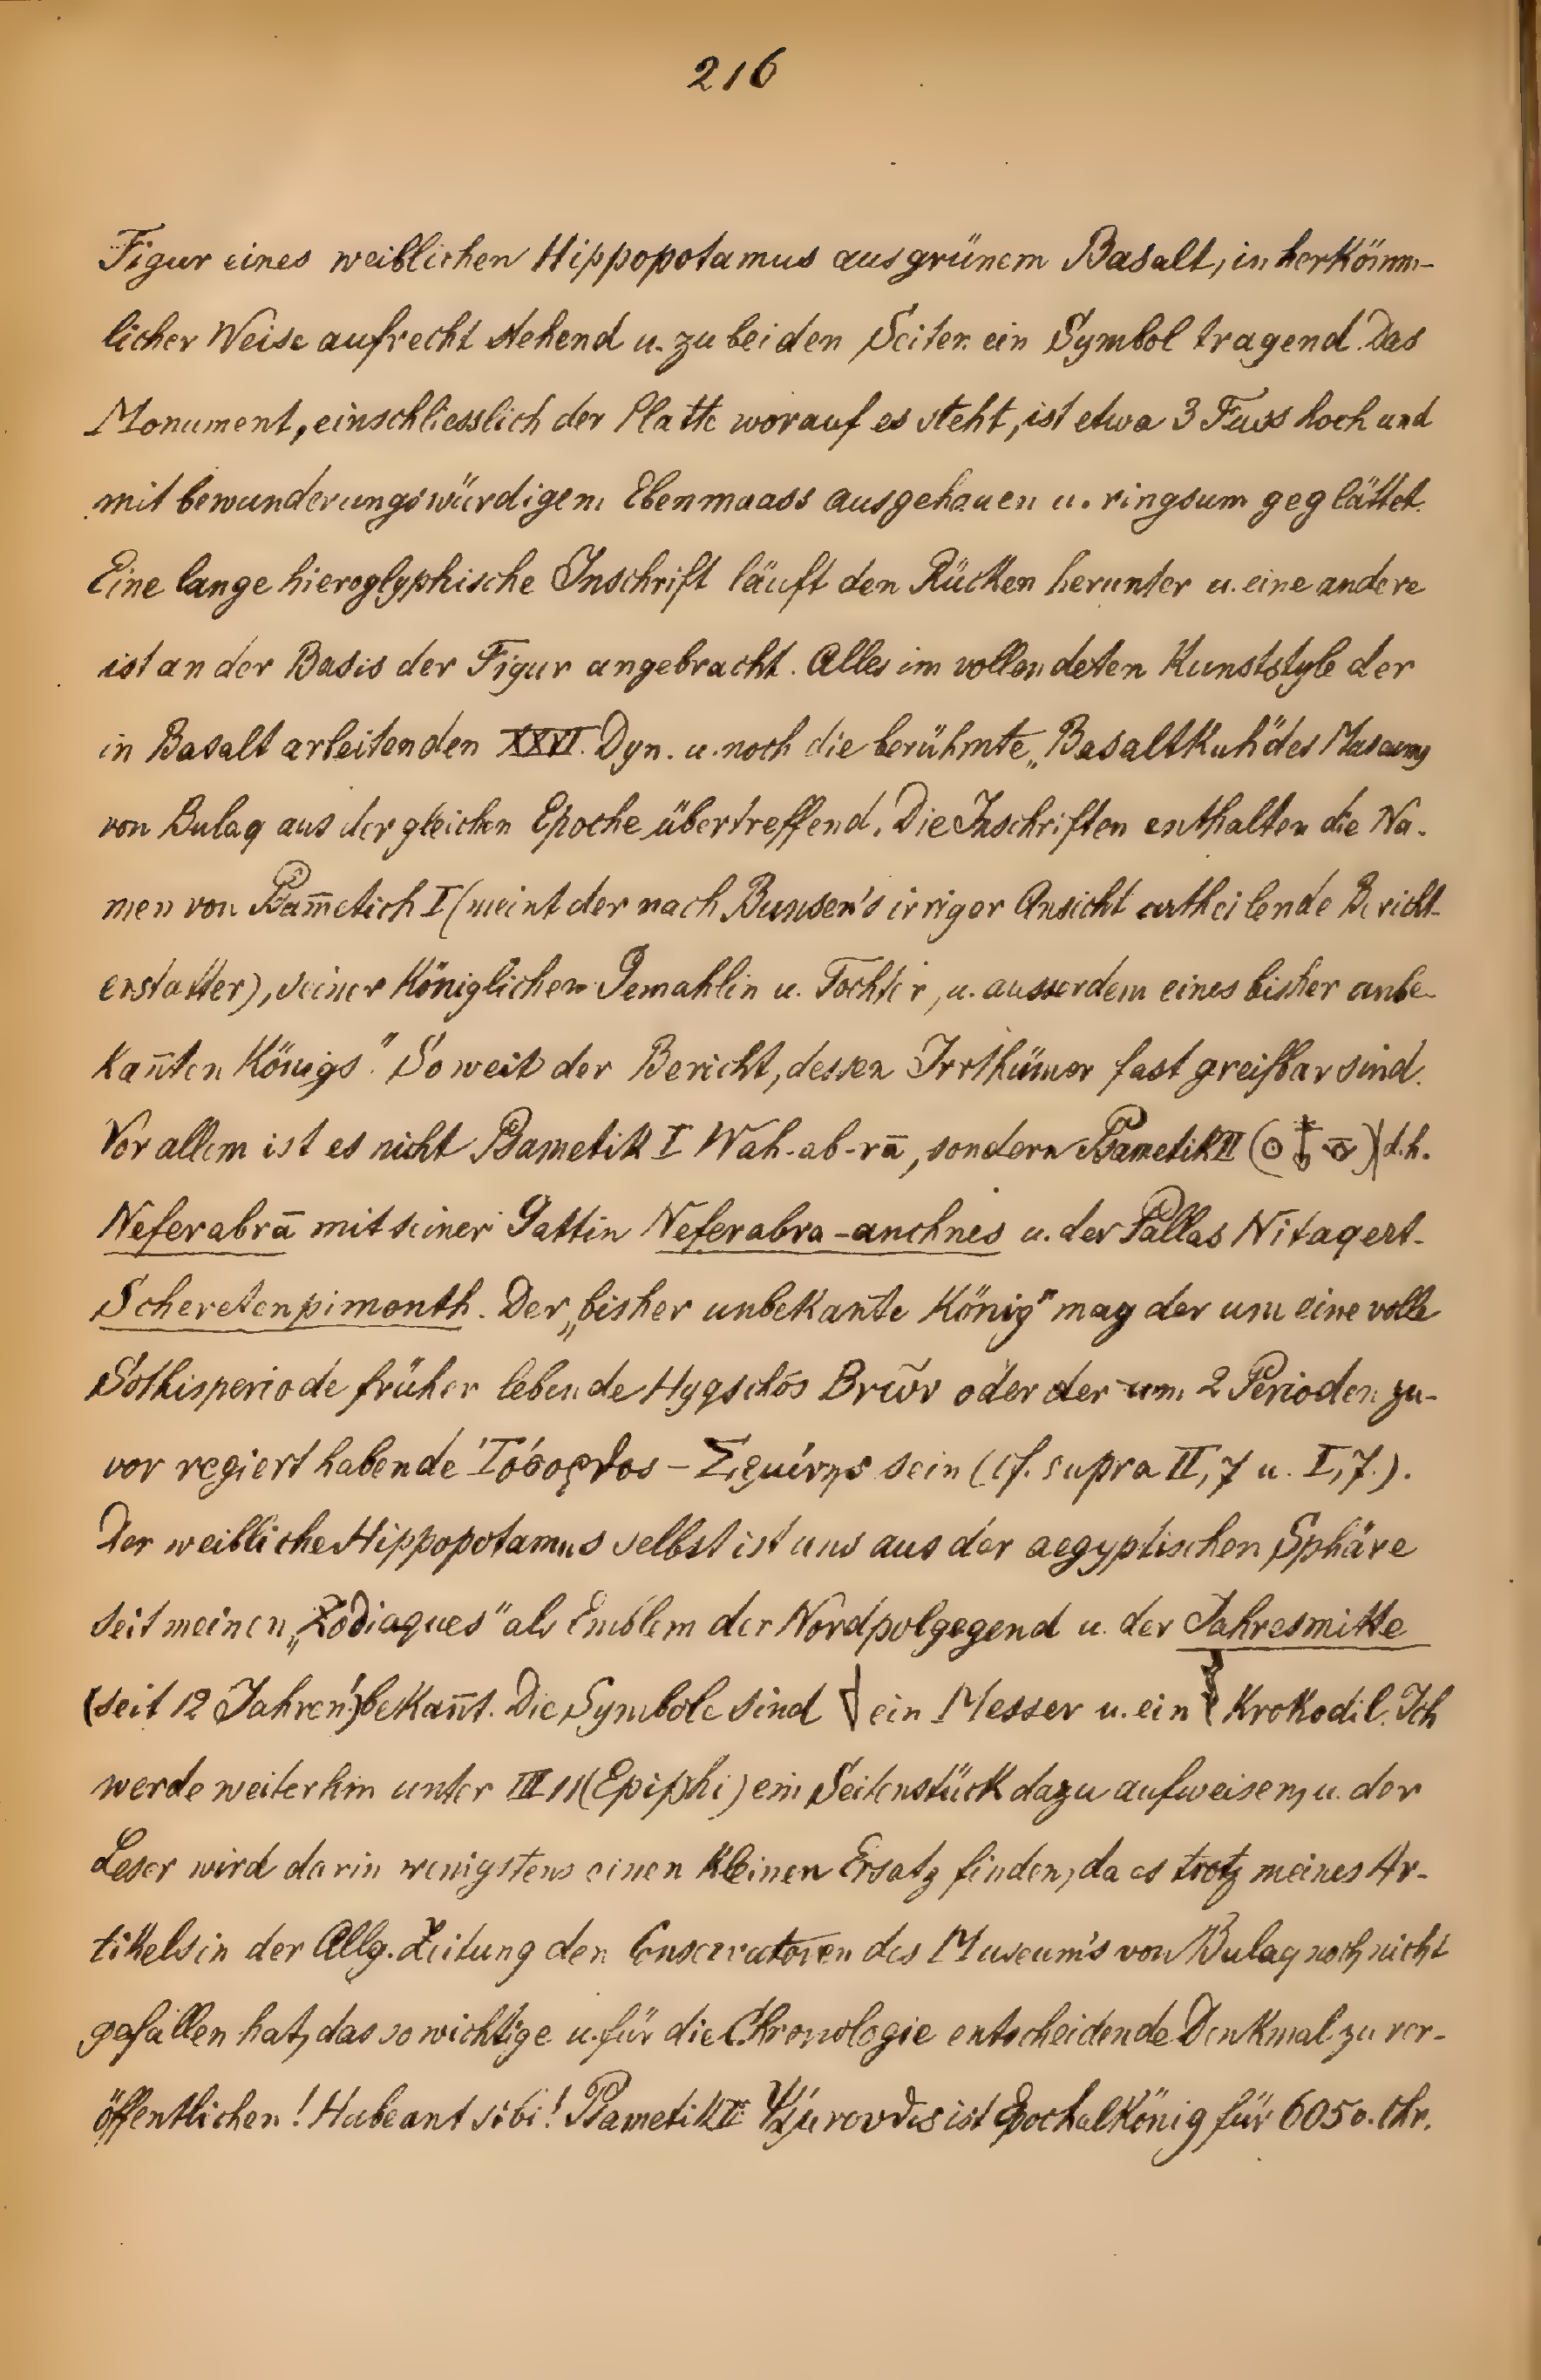 216
Figur eines weiblichen Hippopotamus aus grünem Basalt, in herkömm-
licher Weise aufrecht stehend u. zu beiden Seiten ein Symbol tragend. Das
Monument, einschliesslich der Platte worauf es steht, ist etwa 3 Fuss hoch und
mit bewunderungswürdigem Ebenmaass ausgehauen u. ringsum geglättet.
Eine lange hieroglyphische Inschrift läuft den Rücken herunter u. eine andere
ist an der Basis der Figur angebracht. Alles im vollendeten Kunststyle der
in Basalt arbeitenden XXVI. Dyn. u. noch die berühmte „Basaltkuh" des Museums
von Bulaq aus der gleichen Epoche übertreffend. Die Inschriften enthalten die Na-
men von Psam̅etich I (meint der nach Bunsen's irriger Ansicht urtheilende Bericht-
erstatter), seiner Königlichen Gemahlin u. Tochter, u. ausserdem eines bisher unbe-
kan̅ten Königs." So weit der Bericht, dessen Irrthümer fast greifbar sind.
Vor allem ist es nicht Psametik I Wah-ab-rā, sondern Psametik II d.h.
Neferabrā mit seiner Gattin Neferabra-anchnes u. der Pallas Nitaqert-
Scheretenpimonth. Der „bisher unbekan̅te König" mag der um eine volle
Sothisperiode früher lebende Hyqschôs Βνῶν oder der um 2 Perioden zu-
vor regiert habende Τόσορθος - sein (cf. supra II, 7 u. I, 7.).
Der weibliche Hippopotamus selbst ist uns aus der aegyptischen Sphäre
seit meinen „Zodiaques" als Emblem der Nordpolgegend u. der Jahresmitte
(seit 12 Jahren!) bekan̅t. Die Symbole sind ein Messer u. ein Krokodil. Ich
werde weiterhin unter III 11 (Epiphi) ein Seitenstück dazu aufweisen, u. der
Leser wird darin wenigstens einen kleinen Ersatz finden, da es trotz meines Ar-
tikels in der Allg. Zeitung den Conservatoren des Museum's von Bulaq noch nicht
gefallen hat, das so wichtige u. für die Chronologie entscheidende Denkmal zu ver-
öffentlichen! Habeant sibi! Psametik II ist Epochalkönig für 605 v. Chr.